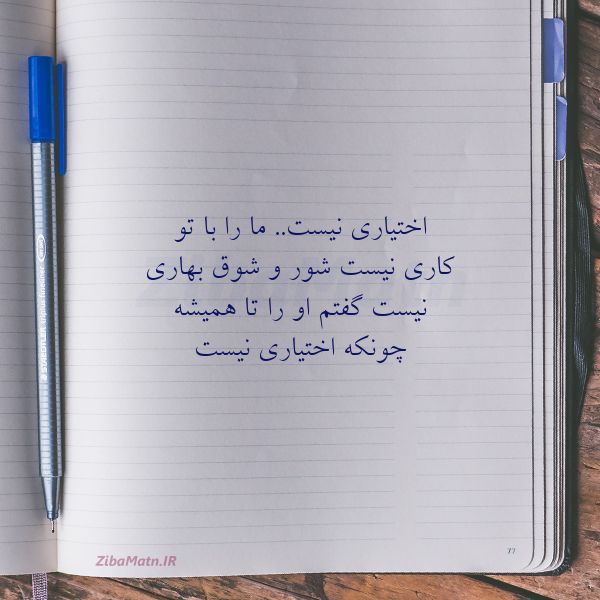 اختیاری نیست.. ما را با تو
کاری نیست شور و شوق بهاری
نیست گفتم او را تا همیشه
چونکه اختیاری نیست
ZibaMatn.IR
77